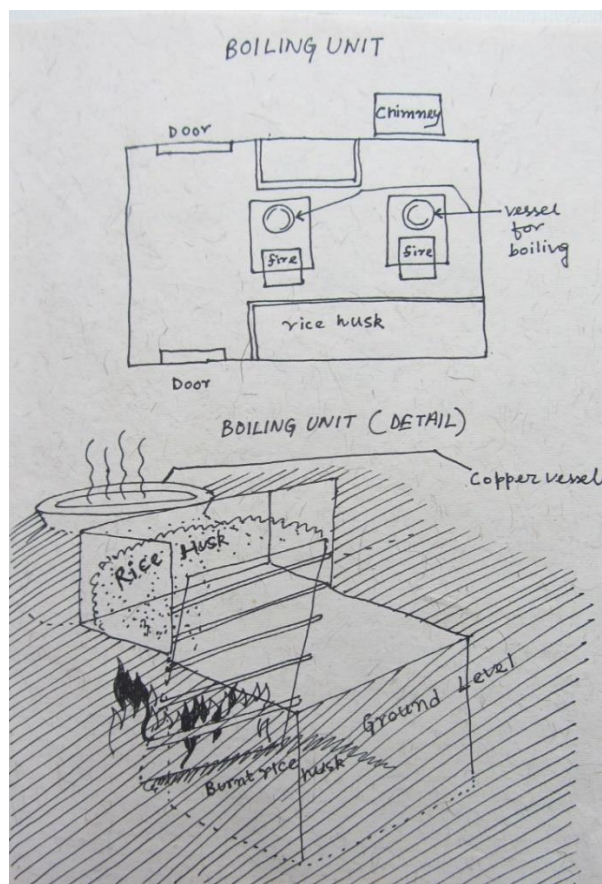 BOILING UNIT
Chimney
Door
vessel
for
boiling
fire
fire
rice husk
Door
BOILING UNIT (DETAIL)
Copper vessel
Rice Husk
Ground Level
Burnt rice husk